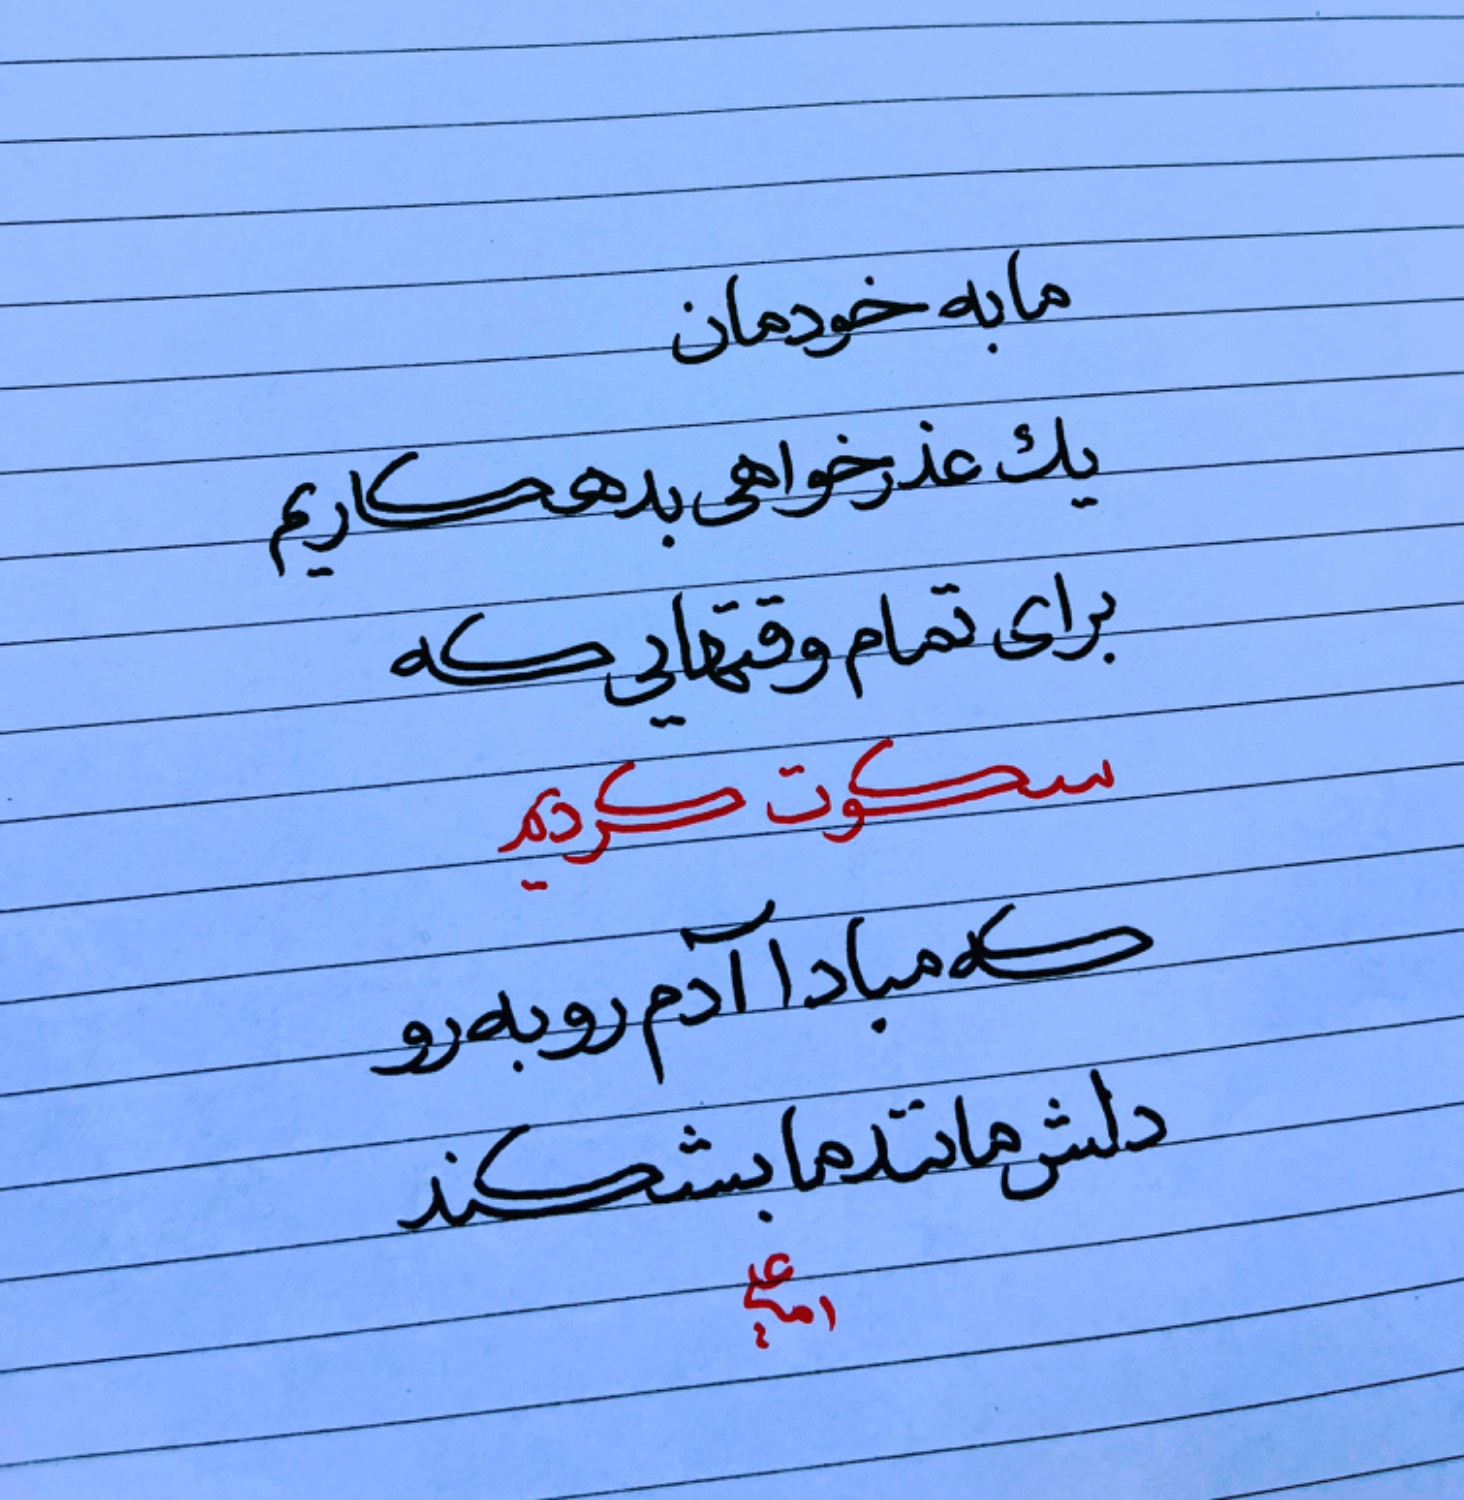 ما به خودمان
یك عذرخواهی بدهکاریم
برای تمام وقتهایی که
سکوت کردیم
که مبادا آدم رو به رو
دلش مانند ما بشکند